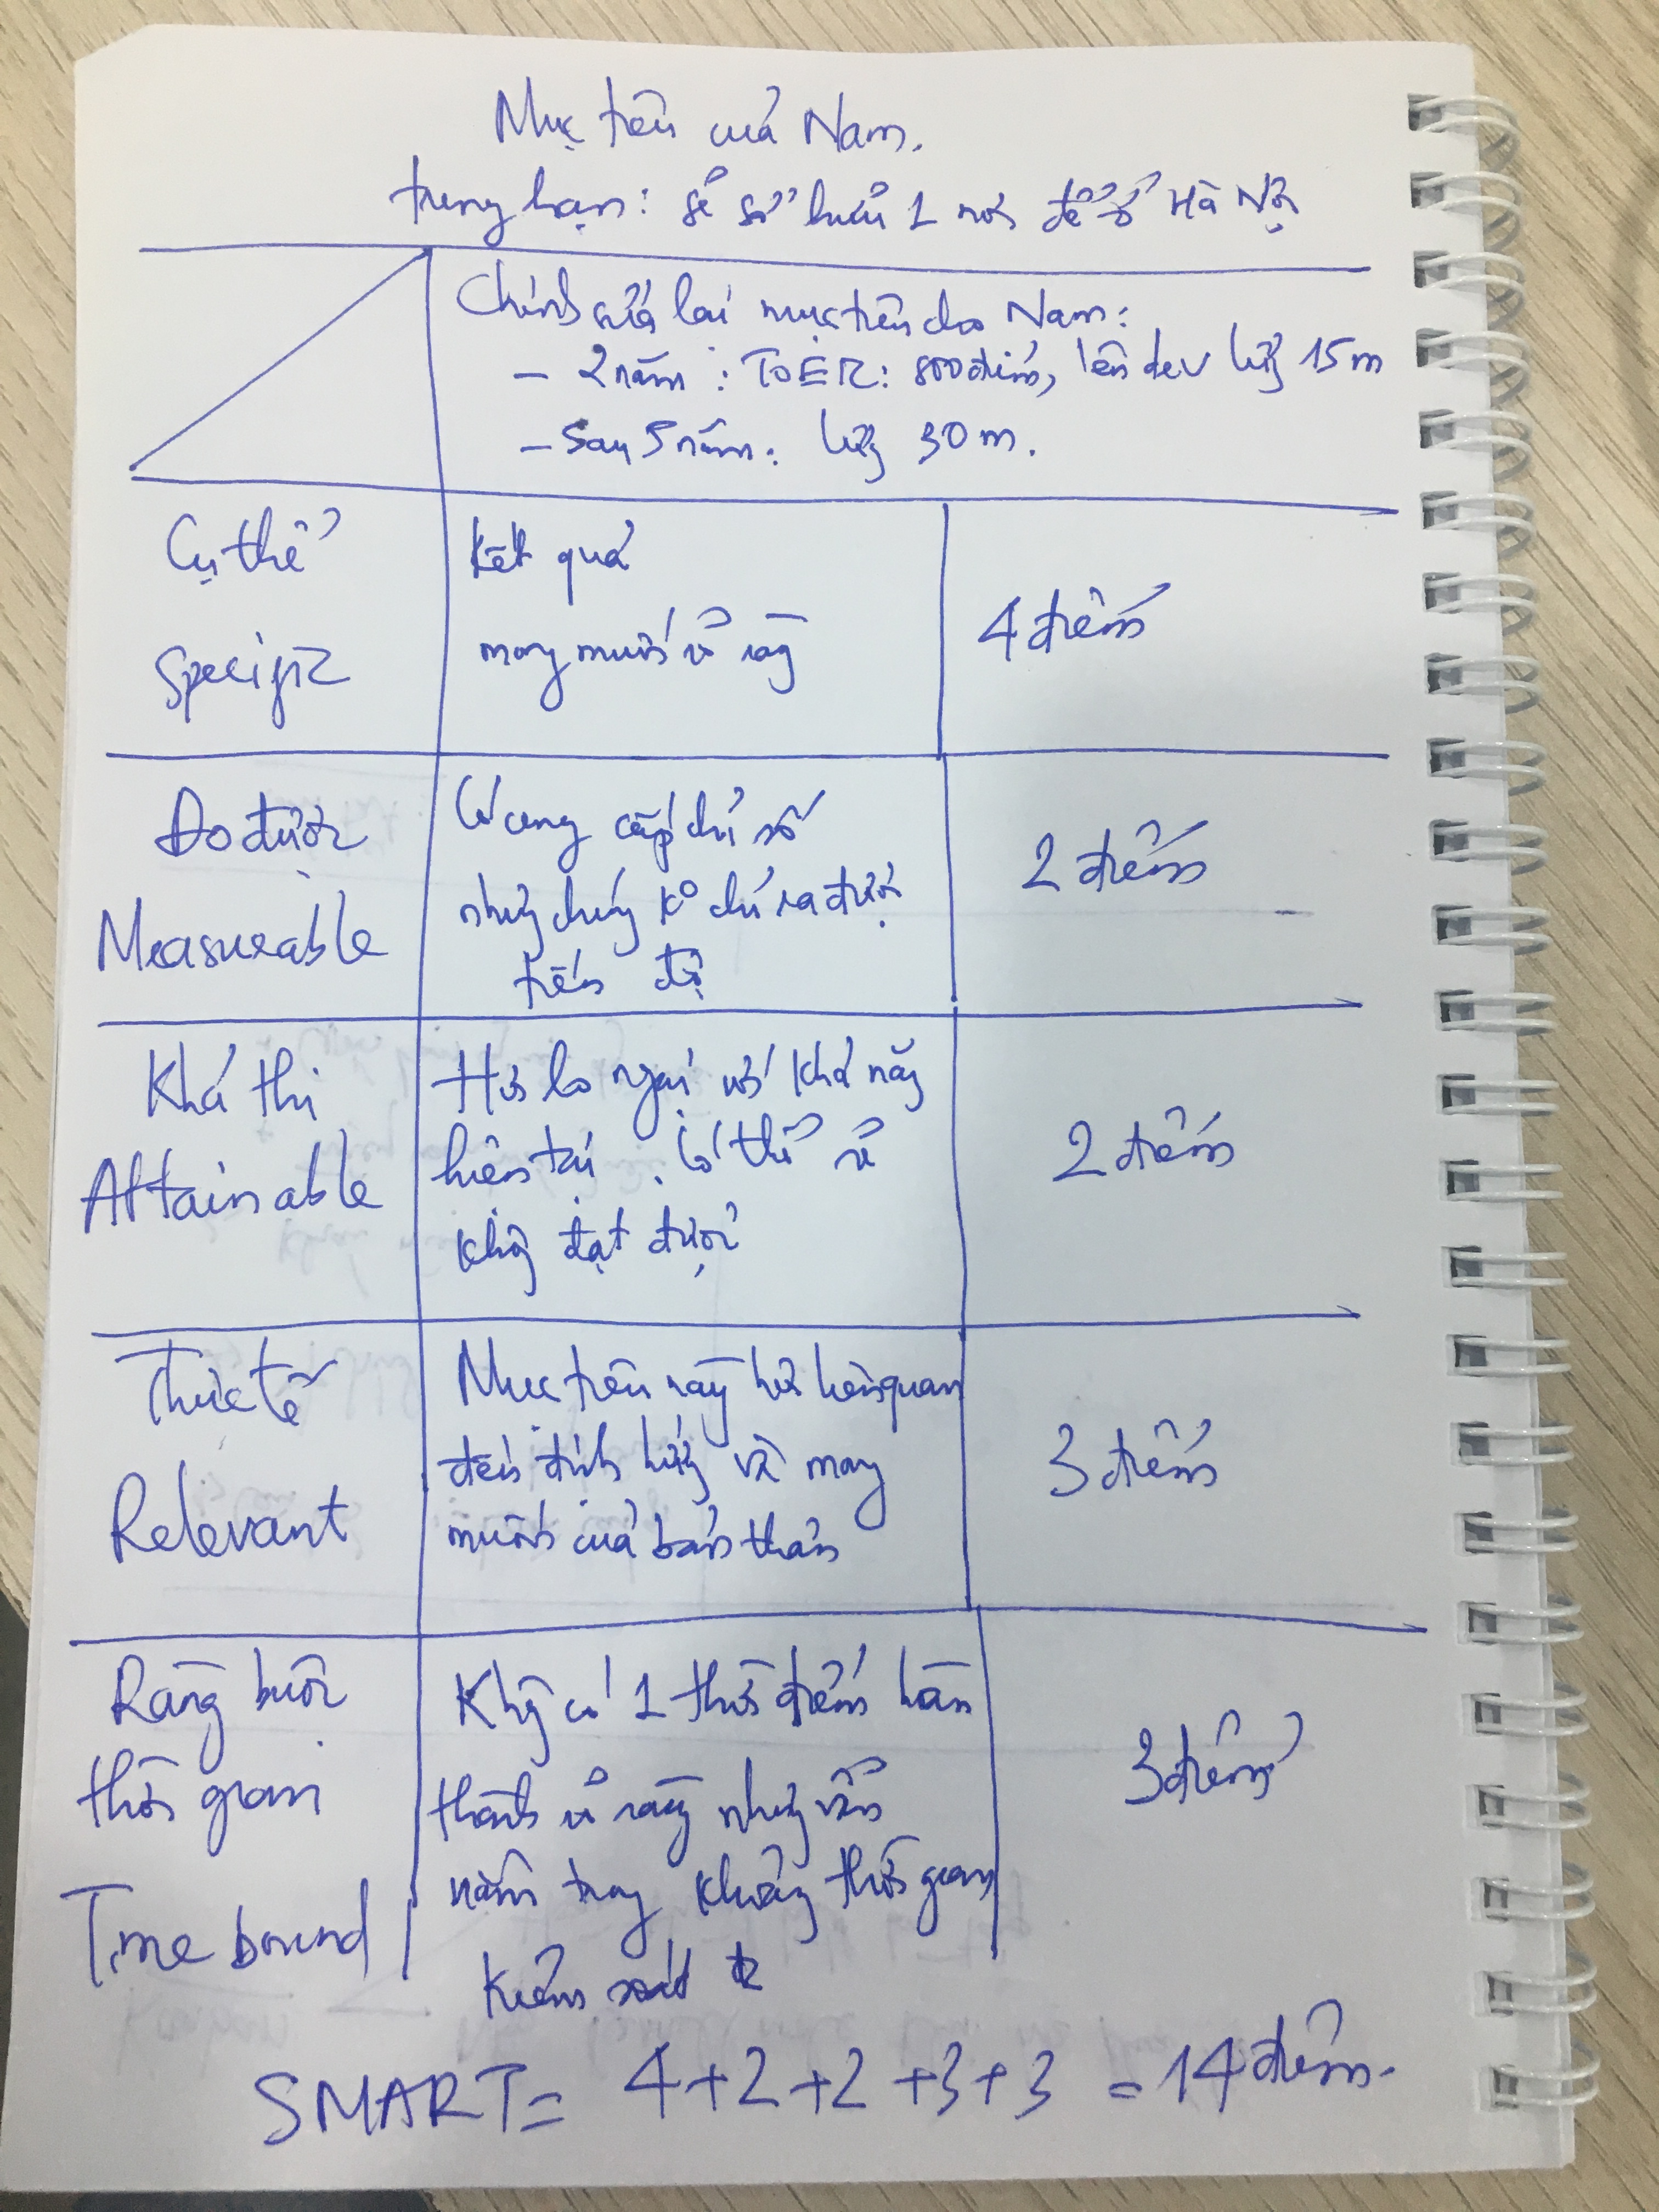 Mục tiêu của Nam.
trung hạn: sẽ sở hữu 1 nơi để ở Hà Nội
Chỉnh sửa lại mục tiêu cho Nam:
- 2 năm : TOEIC: 800 điểm, lên dev lương 15m
- Sau 5 năm: lương 30 m.
Cụ thể
Specific
Kết quả
mong muốn rõ ràng
4 điểm
Đo được
Measureable
Có cung cấp chỉ số
nhưng chúng ko chỉ ra được
tiến độ
2 điểm
Khả thi
Attainable
Hơi lo ngại với khả năng
hiện tại. Có thể sẽ
không đạt được
2 điểm
Thực tế
Relevant
Mục tiêu này hơi liên quan
đến định hướng và mong
muốn của bản thân
3 điểm
Ràng buộc
thời gian
Time bound
Không có 1 thời điểm hoàn
thành rõ ràng nhưng vẫn
nằm trong khoảng thời gian
kiểm soát
3 điểm
SMART = 4+2+2+3+3 = 14 điểm.